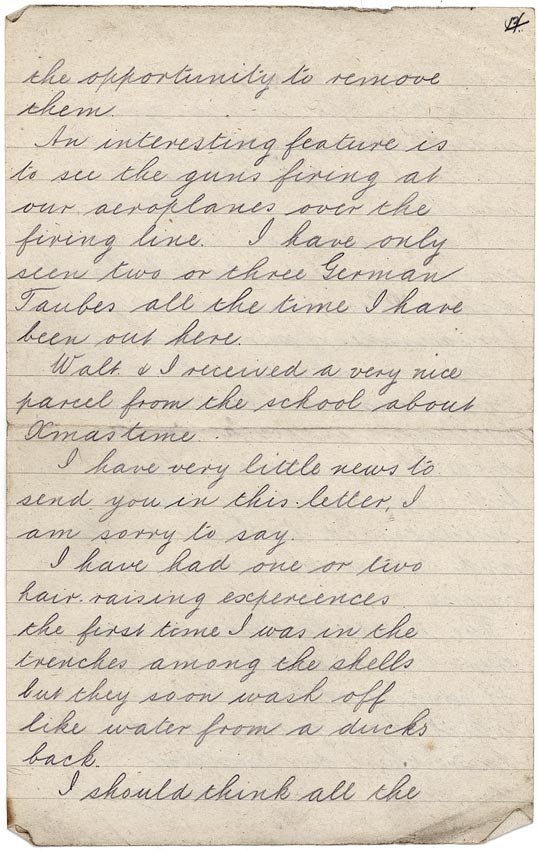 the opportunity to remove
them.
An interesting feature is
to see the guns firing at
our aeroplanes over the
firing line. I have only
seen two or three German
Taubes all the time I have
been out here.
Walt. & I received a very nice
parcel from the school about
Xmas time.
I have very little news to
send you in this letter, I
am sorry to say.
I have had one or two
hair-raising experiences
the first time I was in the
trenches among the shells
but they soon wash off
like water from a ducks
back.
I should think all the